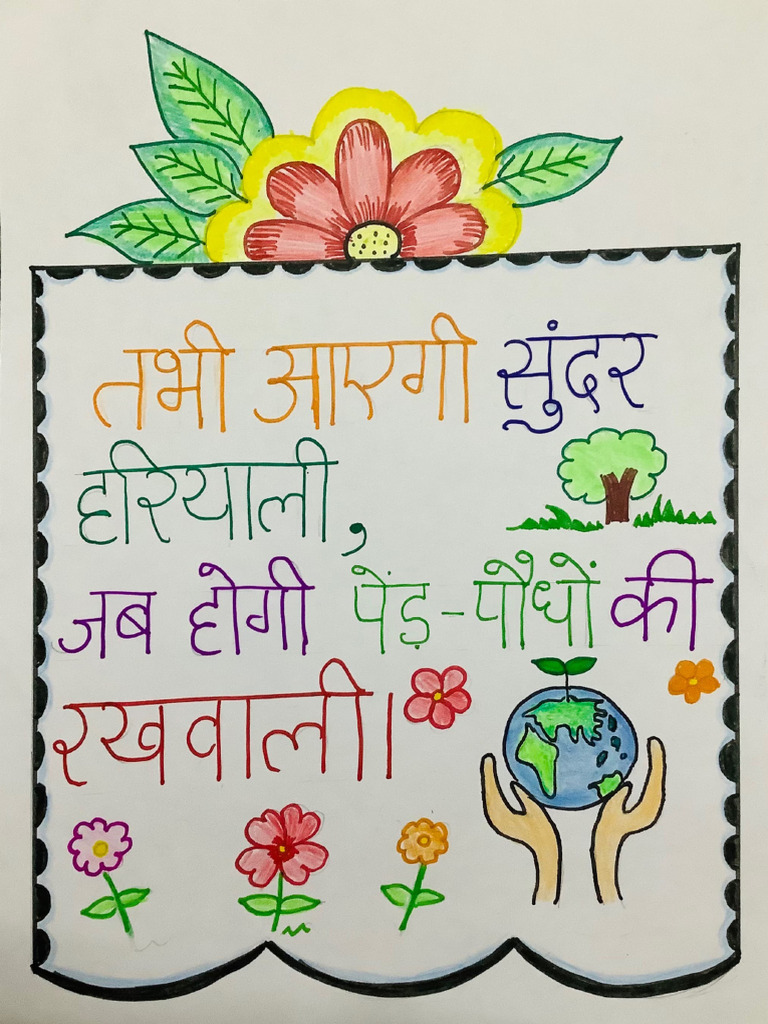 तभी आएगी सुंदर
हरियाली,
जब होगी पेंड़-पौधों की
रखवाली।